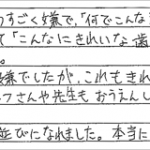 つすごく嫌で、「何でこんな
て「こんなにきれいな歯
。
嫌でしたが、これもきれ
フさんや先生もおうえんし
。
並びになれました。本当に